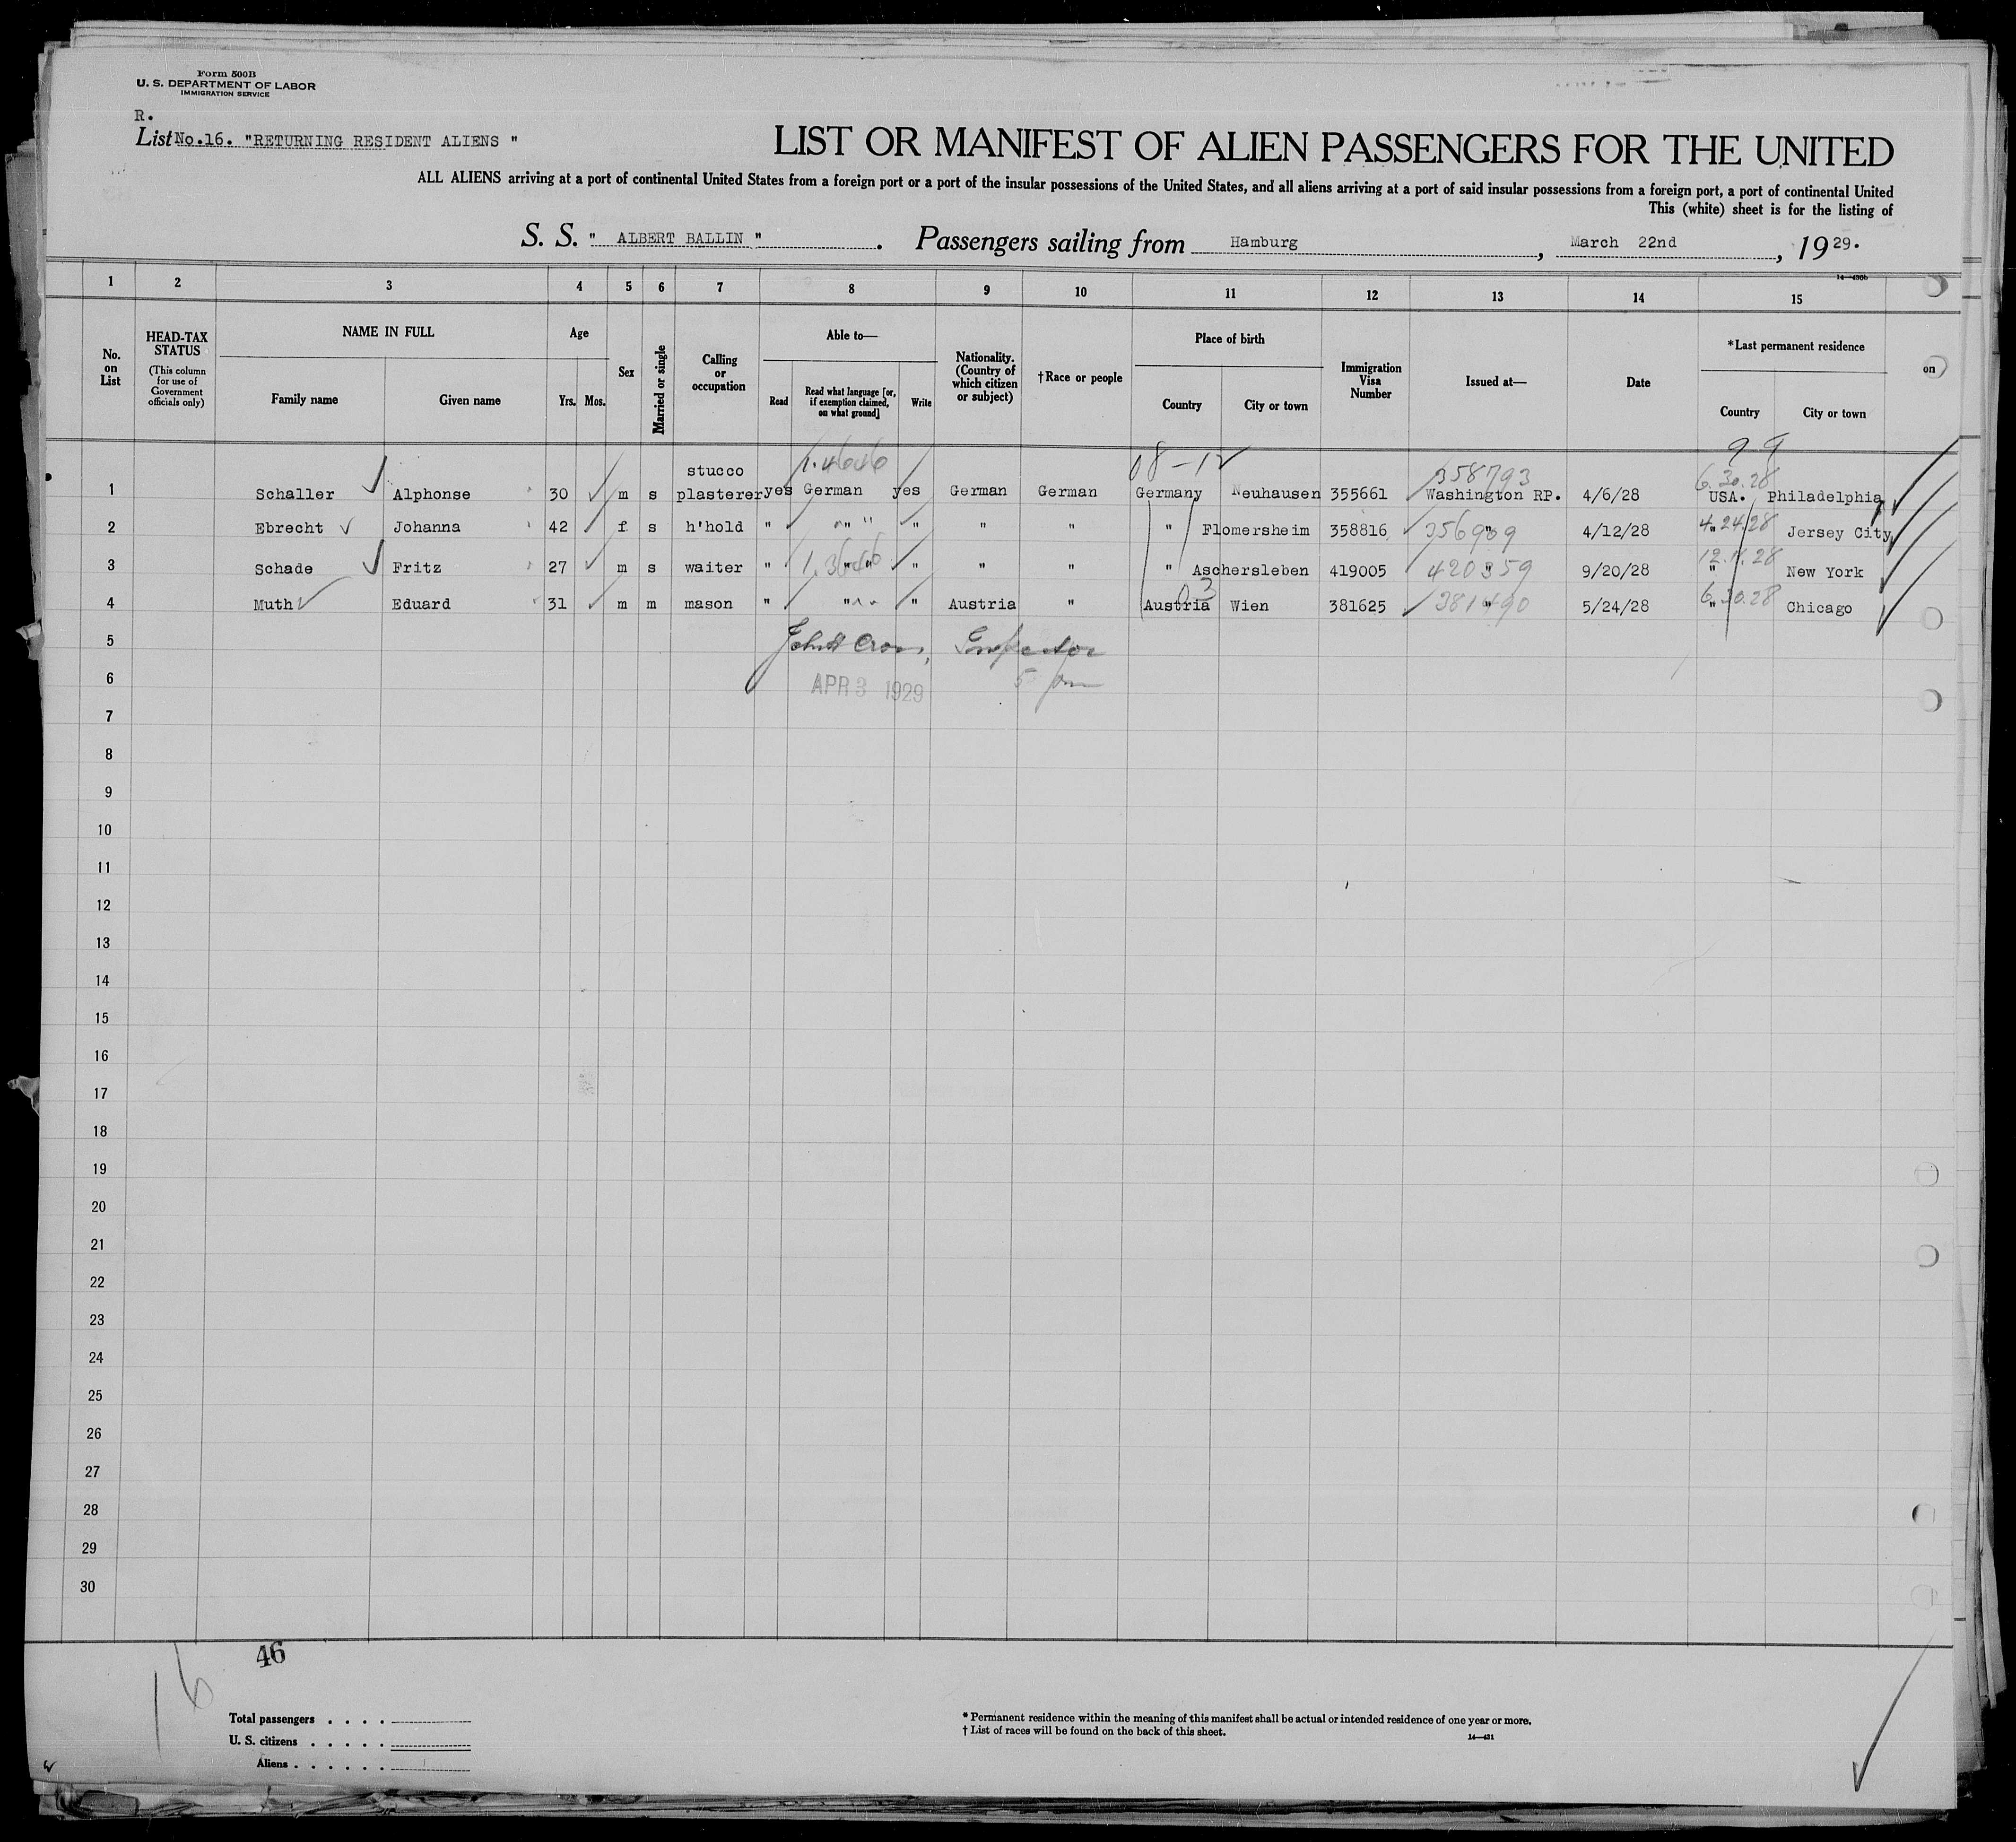 Form 500B
U. S. DEPARTMENT OF LABOR
IMMIGRATION SERVICE
R.
List No.16. "RETURNING RESIDENT ALIENS "
LIST OR MANIFEST OF ALIEN PASSENGERS FOR THE UNITED
ALL ALIENS arriving at a port of continental United States from a foreign port or a port of the insular possessions of the United States, and all aliens arriving at a port of said insular possessions from a foreign port, a port of continental United
This (white) sheet is for the listing of
S. S. " ALBERT BALLIN " . Passengers sailing from Hamburg , March 22nd , 19 29.
14—430b
1 2 3 4 5 6 7 8 9 10 11 12 13 14 15
No. on List
HEAD-TAX STATUS
(This column for use of Government officials only)
NAME IN FULL
Family name Given name
Age
Yrs. Mos.
Sex
Married or single
Calling or occupation
Able to—
Read
Read what language [or, if exemption claimed, on what ground]
Write
Nationality. (Country of which citizen or subject)
†Race or people
Place of birth
Country City or town
Immigration Visa Number
Issued at—
Date
*Last permanent residence
Country City or town
on
99
08-12
1.4646
358793
6.30.28
stucco
1 Schaller Alphonse 30 m s plasterer yes German yes German German Germany Neuhausen 355661 Washington RP. 4/6/28 USA. Philadelphia
2 Ebrecht Johanna 42 f s h'hold " " " " " " " Flomersheim 358816 356909 " 4/12/28 4.24.28 " Jersey City
3 Schade Fritz 27 m s waiter " 1.3646 " " " " " " Aschersleben 419005 420359 " 9/20/28 " New York
03
4 Muth Eduard 31 m m mason " " " Austria " Austria Wien 381625 381490 " 5/24/28 6.30.28 " Chicago
5 Inspector
6 APR 3 1929
5 pm
7
8
9
10
11
12
13
14
15
16
17
18
19
20
21
22
23
24
25
26
27
28
29
30
16
46
Total passengers . . . .
U. S. citizens . . . . .
Aliens . . . . . .
* Permanent residence within the meaning of this manifest shall be actual or intended residence of one year or more.
† List of races will be found on the back of this sheet.
14—431